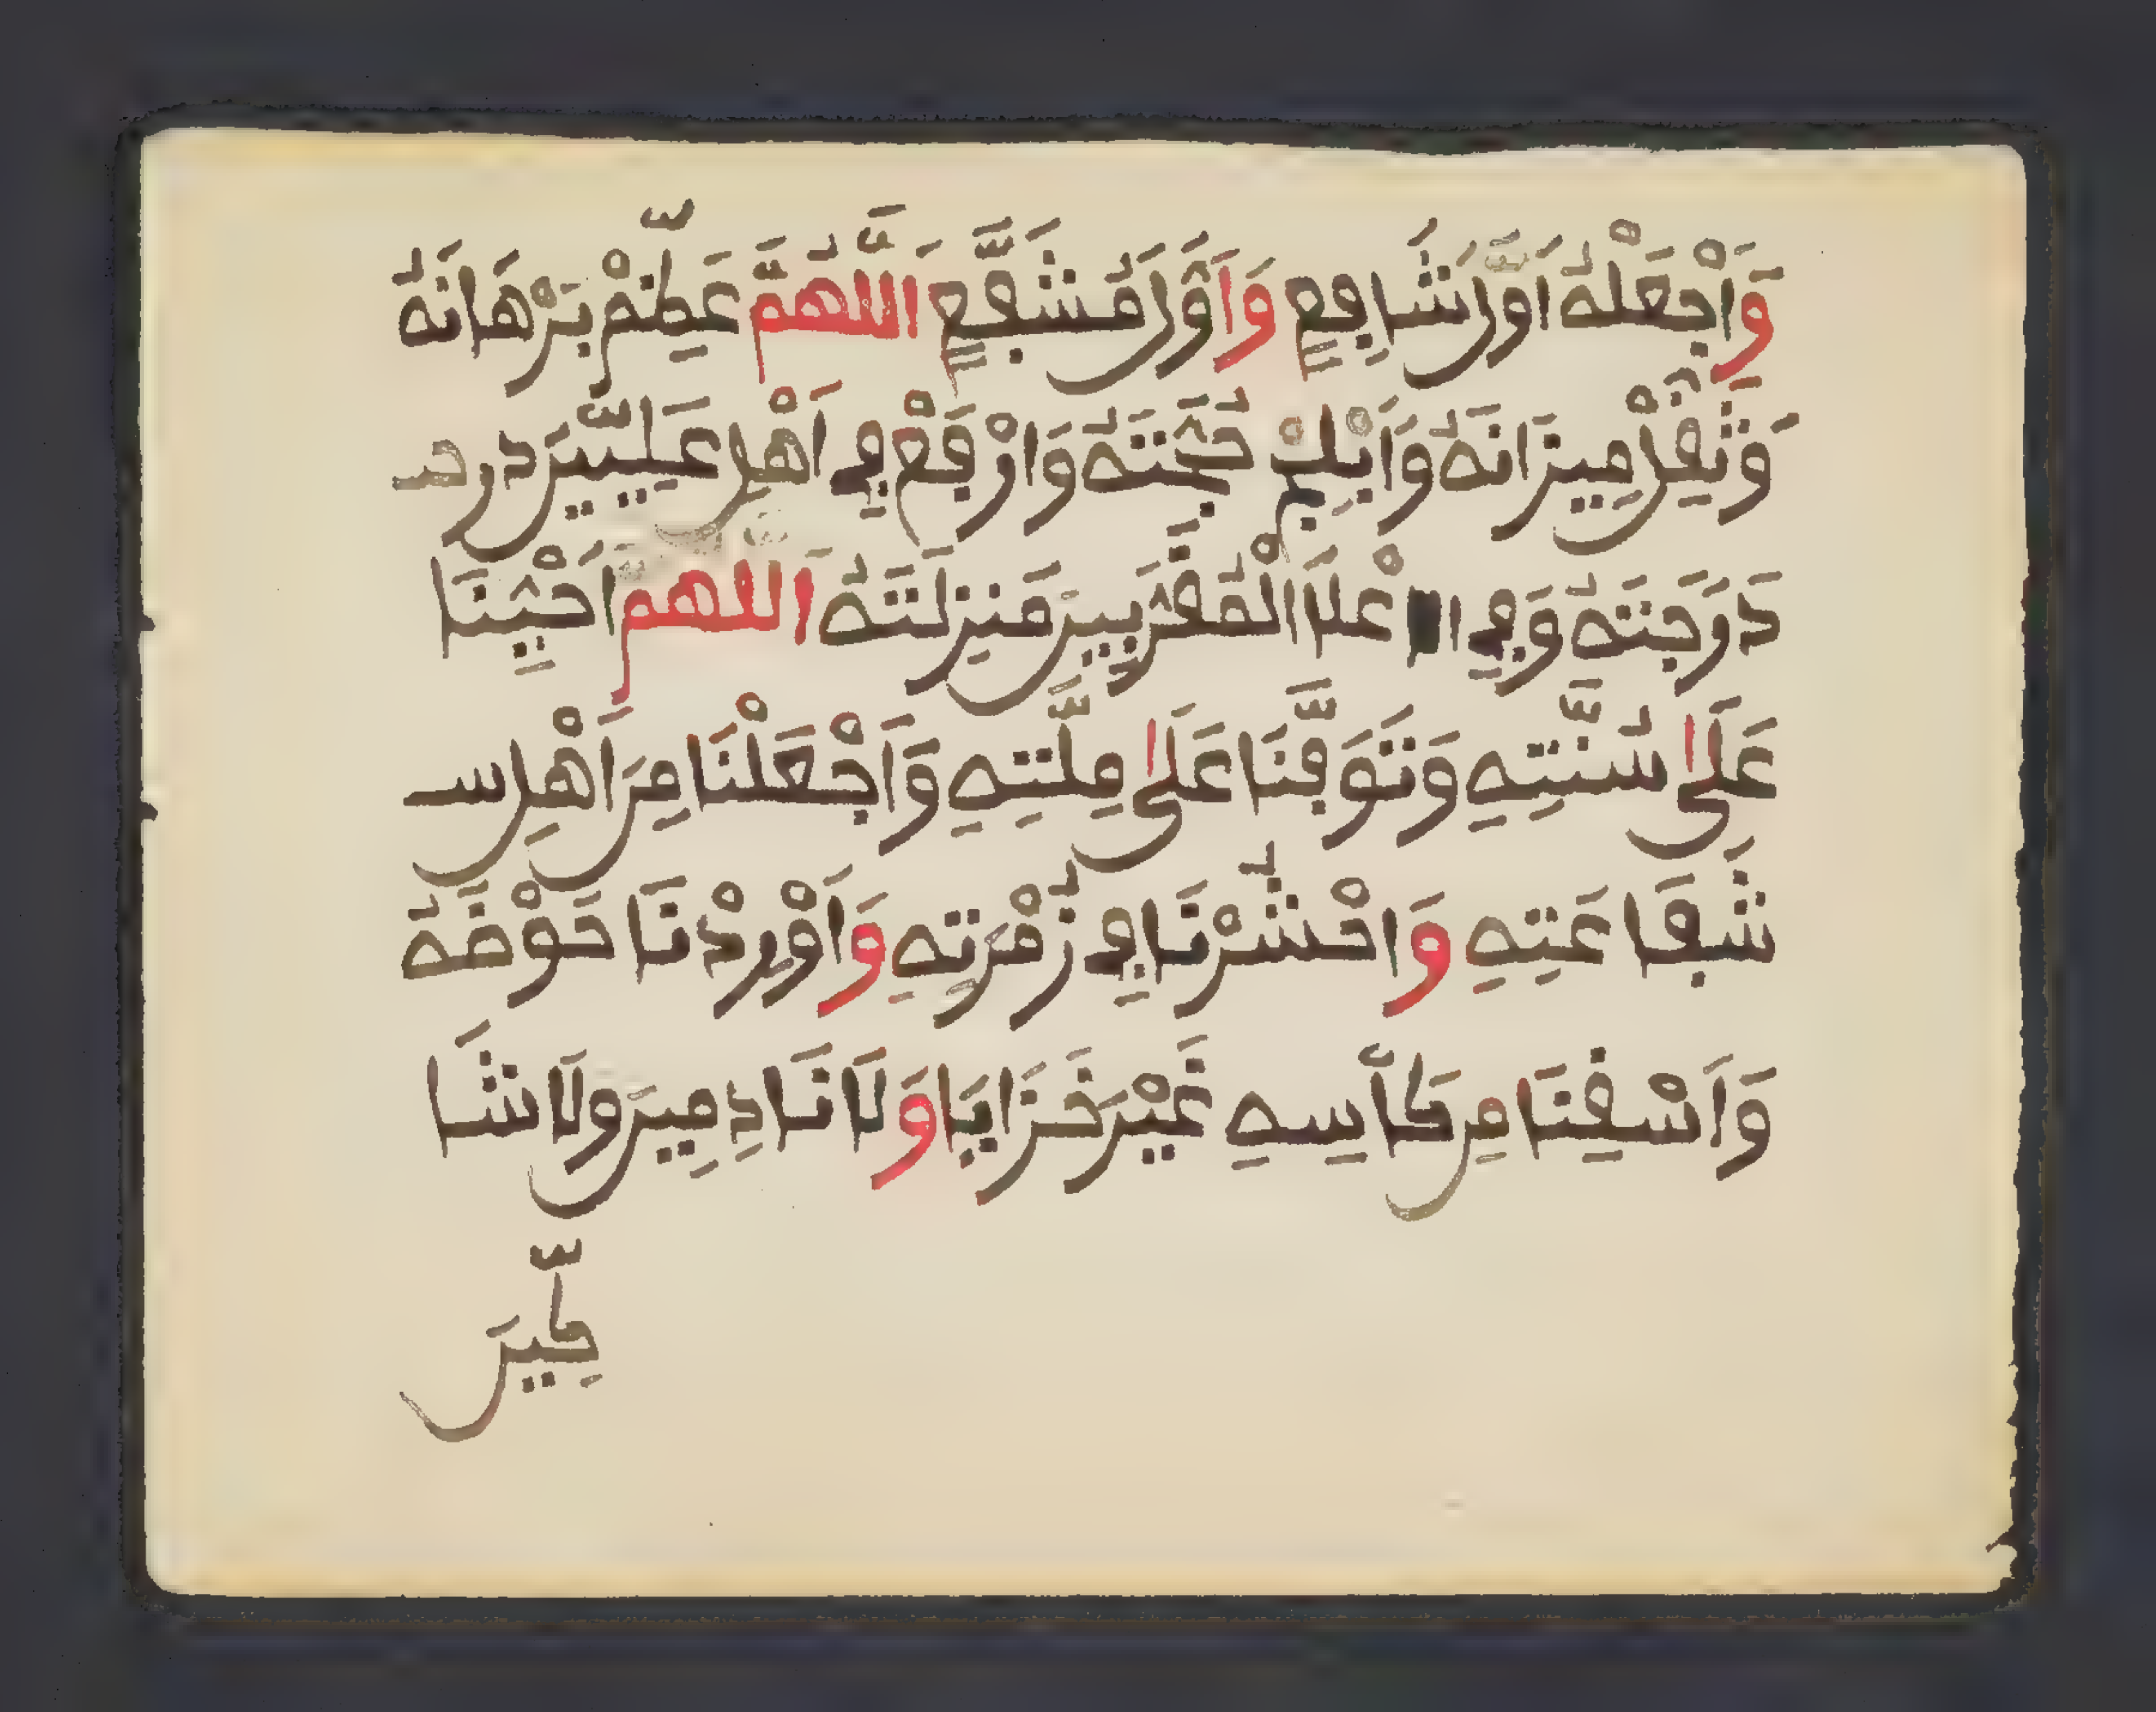 وَاَجْعَلْهُ اَوَّلَ شَافِعٍ وَاَوَّلَ مُشَفَّعٍ اَللَّهُمَّ عَظِّمْ بُرْهَانَهُ
وَثَقِّلْ مِيزَانَهُ وَاَبْلِجْ حُجَّتَهُ وَارْفَعْ فِي اَهْلِ عِلِّيِّينَ در حـ
دَرَجَتَهُ وَفِي اَعْلَا الْمُقَرَّبِينَ مَنزِلَتَهُ اَللهم اَحْيِنَا
عَلَى سُنَّتِهِ وَتَوَفَّنَا عَلَى مِلَّتِهِ وَاَجْعَلْنَا مِنَ اَهْلِ سـ
شَفَاعَتِهِ وَاحْشُرْنَا فِي زُمْرَتِهِ وَاَوْرِدْنَا حَوْضَهُ
وَاَسْقِنَا مِن كَأْسِهِ غَيْرَ خَزَايَا وَلَا نَادِمِينَ وَلَا شَا
كِّينَ